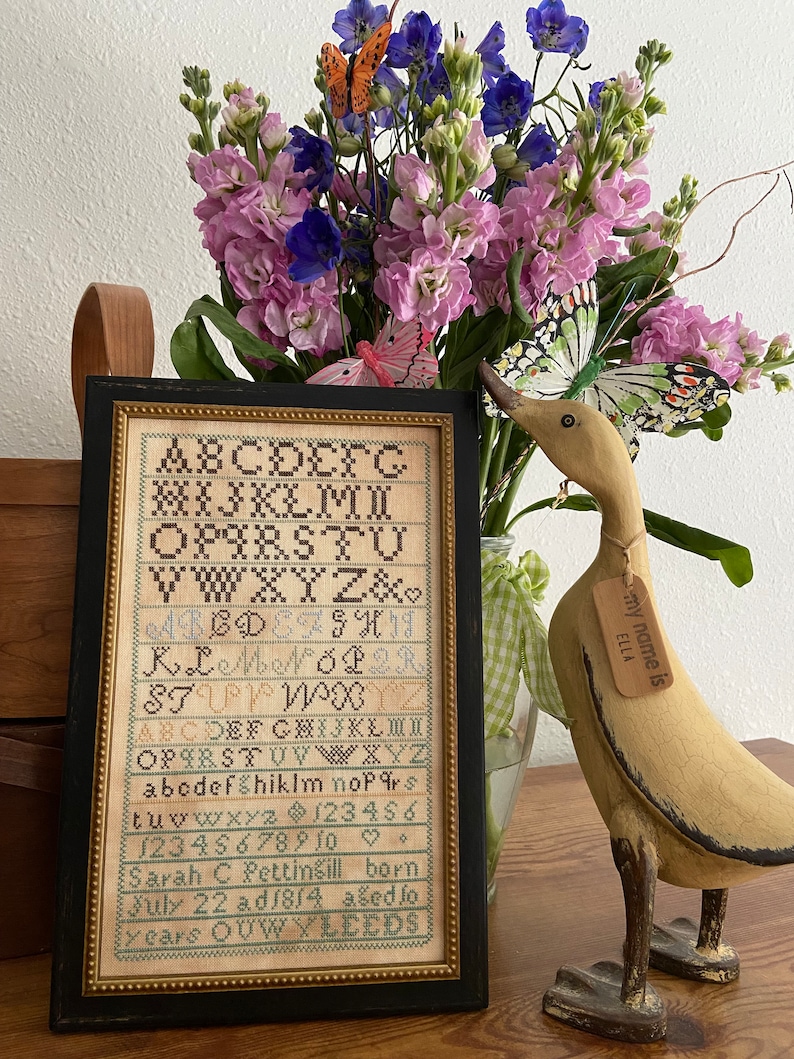 ABCDEFG
HIJKLMII
OPQRSTU
VWXYZ&
ABCDEFGHI
KLMNOPQR
STUVWXYZ
ABCDEFGHIJKLMII
OPQRSTUVWXYZ
abcdefghiklmnopqrs
tuvwxyz 123456
12345678910
Sarah C Pettingill born
July 22 ad1814 aged10
years OUWYLEEDS
my name is
ELLA